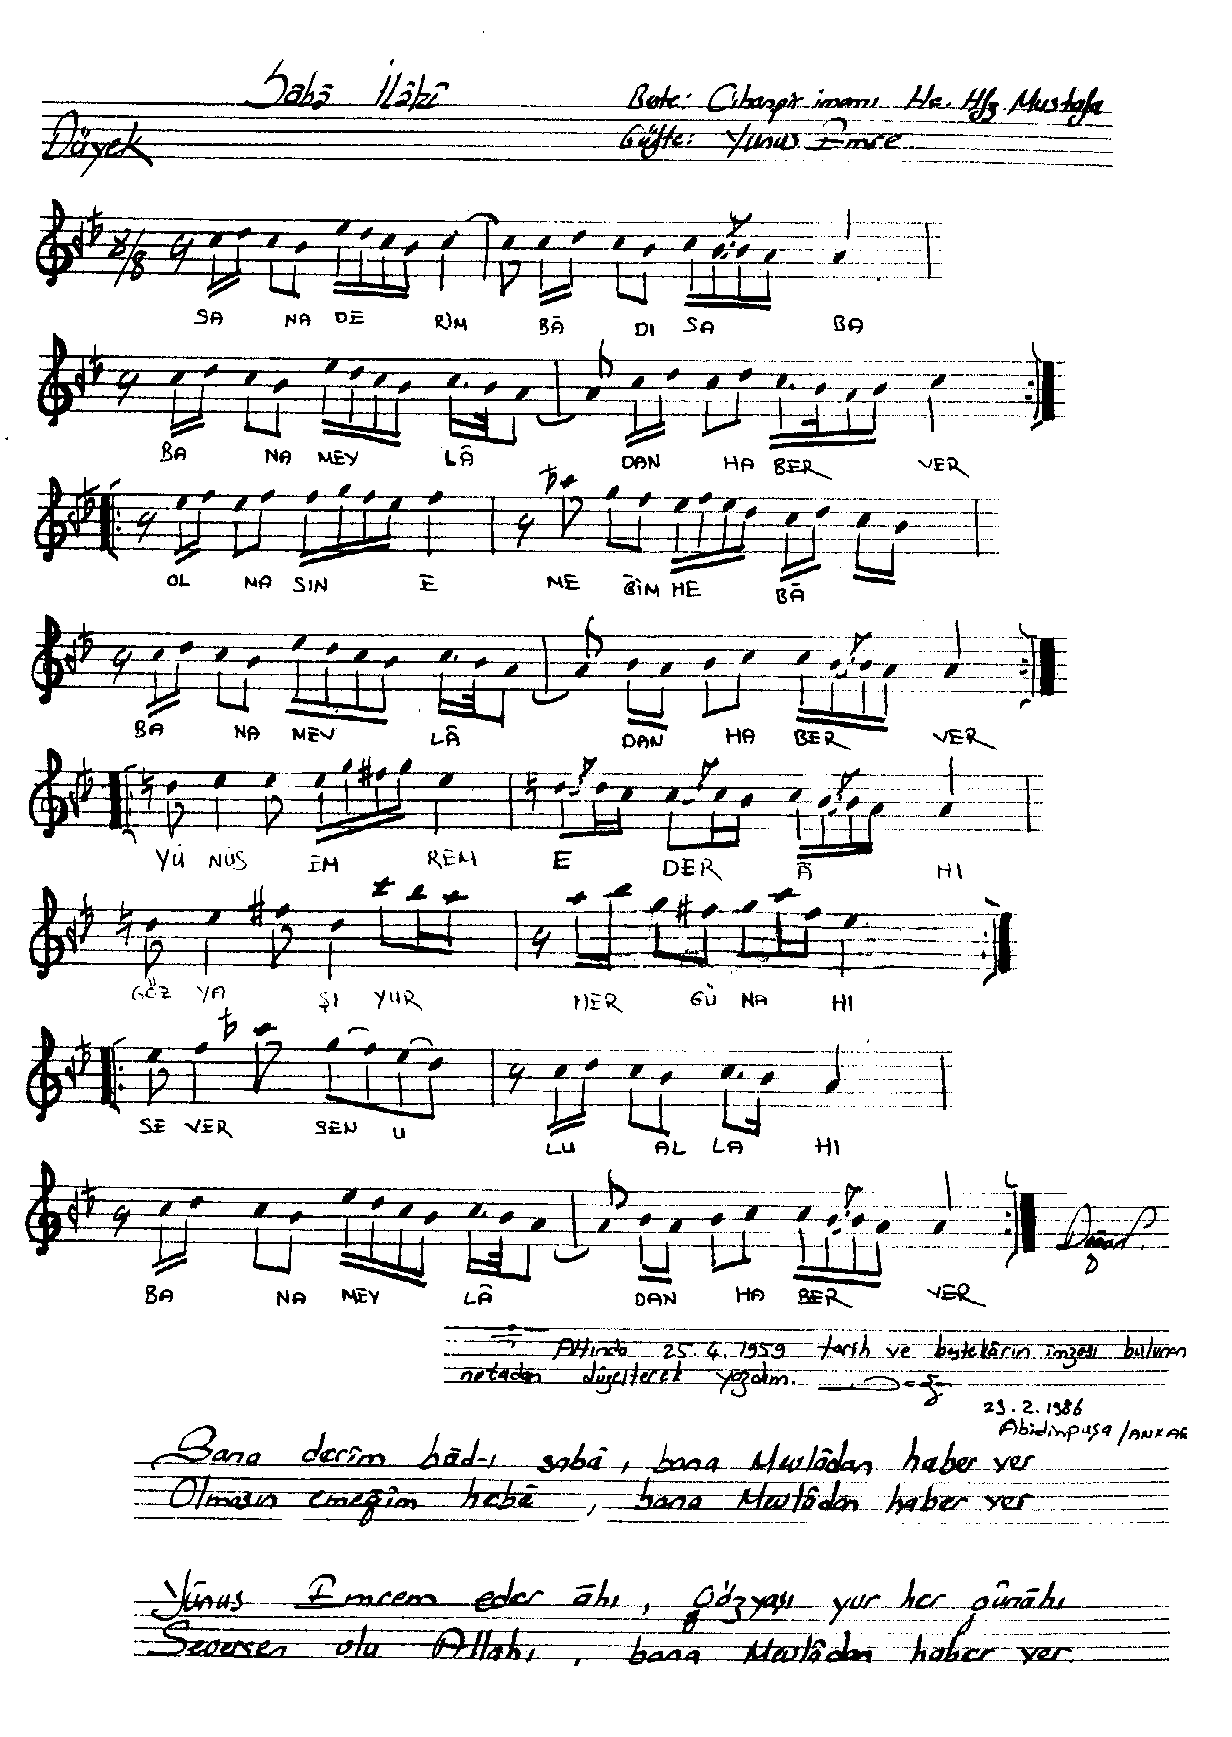 Sabâ İlâhî
Beste: Cihazpir imamı Ha. Hfz. Mustafa
Düyek
Güfte: Yunus Emre
8/8
SA NA DE RİM BÂ DI SA BA
BA NA MEV LÂ DAN HA BER VER
OL MA SIN E ME ĞİM HE BÂ
BA NA MEV LÂ DAN HA BER VER
YÛ NUS EM REM E DER Â HI
GÖZ YA ŞI YUR HER GÜ NA HI
SE VER SEN U LU AL LA HI
BA NA MEV LÂ DAN HA BER VER
Altında 25.4.1959 tarih ve bestekârın imzası bulunan
notadan düzelterek yazdım.
23.2.1986
Abidinpaşa/ANKAR
Sana derîm bâd-ı sabâ, bana Mevlâdan haber ver
Olmasın emeğîm hebâ, bana Mevlâdan haber ver
Yûnus Emrem eder âhı, gözyaşı yur her günâhı
Seversen ulu Allahı, bana Mevlâdan haber ver.